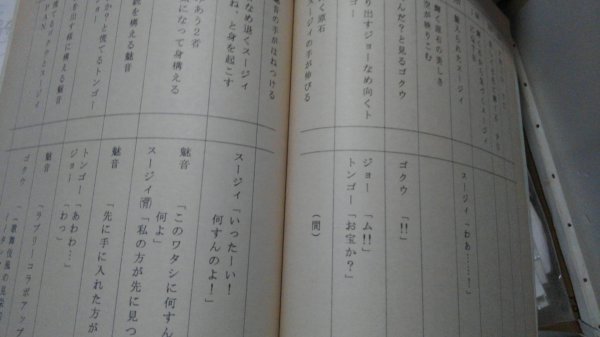 魅入られたスージィ
輝く原石の美しさ
空が映りこむ
んだ?と見るゴクウ
り出すジョーなめ向くト
く原石
スージィの手が伸びる
スージィ「わあ……!」
ゴクウ「!!」
ジョー「ム!!」
トンゴー「お宝か?」
(間)
の手がはねつける
なめ退くスージィ
ね、と身を起こす
あう2者
になって身構える
を構える魅音
か?と慌てるトンゴー
を出す様に構える魅音
PAN
スージィ「いったーい!
何すんのよ!」
魅音「このワタシに何すん
何よ」
スージィ㊟「私の方が先に見つ
魅音「先に手に入れた方が
トンゴー「あわわ…」
ジョー「わっ」
魅音「ラブリーコラボアップ
ゴクウ(歌舞伎風の見栄